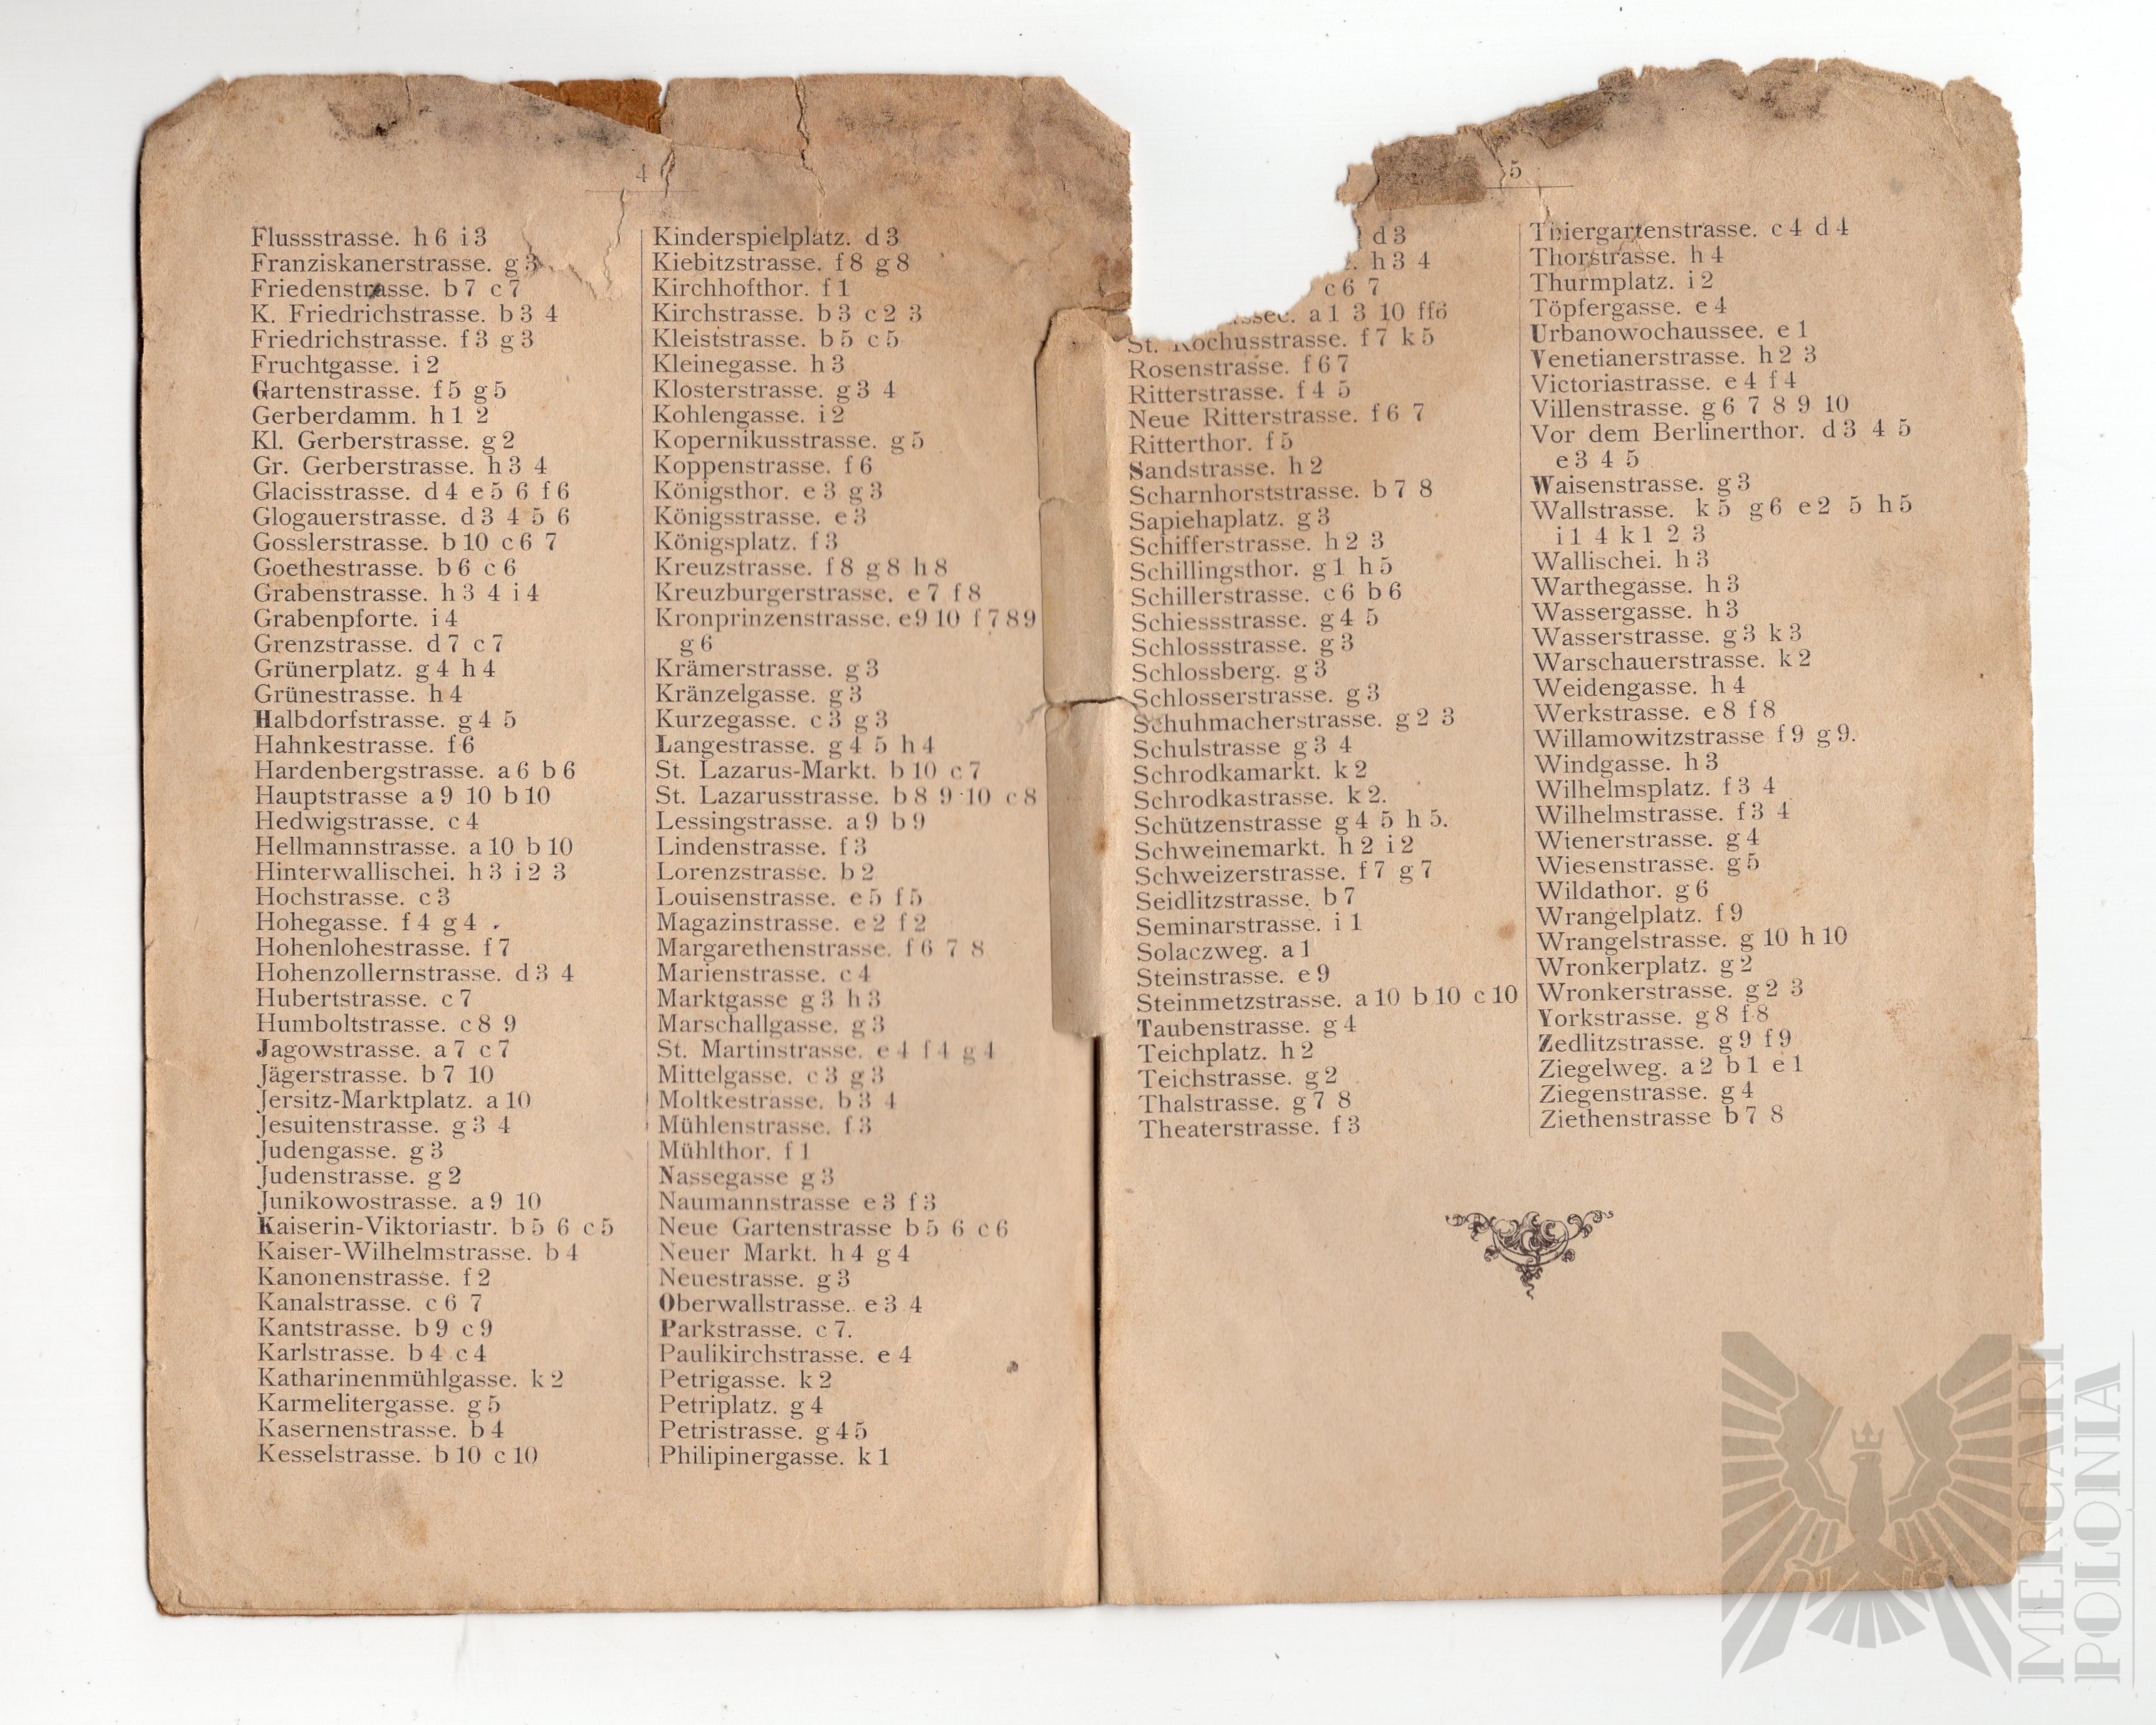 4
Flussstrasse. h 6 i 3
Franziskanerstrasse. g 3
Friedenstrasse. b 7 c 7
K. Friedrichstrasse. b 3 4
Friedrichstrasse. f 3 g 3
Fruchtgasse. i 2
Gartenstrasse. f 5 g 5
Gerberdamm. h 1 2
Kl. Gerberstrasse. g 2
Gr. Gerberstrasse. h 3 4
Glacisstrasse. d 4 e 5 6 f 6
Glogauerstrasse. d 3 4 5 6
Gosslerstrasse. b 10 c 6 7
Goethestrasse. b 6 c 6
Grabenstrasse. h 3 4 i 4
Grabenpforte. i 4
Grenzstrasse. d 7 c 7
Grünerplatz. g 4 h 4
Grünestrasse. h 4
Halbdorfstrasse. g 4 5
Hahnkestrasse. f 6
Hardenbergstrasse. a 6 b 6
Hauptstrasse a 9 10 b 10
Hedwigstrasse. c 4
Hellmannstrasse. a 10 b 10
Hinterwallischei. h 3 i 2 3
Hochstrasse. c 3
Hohegasse. f 4 g 4
Hohenlohestrasse. f 7
Hohenzollernstrasse. d 3 4
Hubertstrasse. c 7
Humboltstrasse. c 8 9
Jagowstrasse. a 7 c 7
Jägerstrasse. b 7 10
Jersitz-Marktplatz. a 10
Jesuitenstrasse. g 3 4
Judengasse. g 3
Judenstrasse. g 2
Junikowostrasse. a 9 10
Kaiserin-Viktoriastr. b 5 6 c 5
Kaiser-Wilhelmstrasse. b 4
Kanonenstrasse. f 2
Kanalstrasse. c 6 7
Kantstrasse. b 9 c 9
Karlstrasse. b 4 c 4
Katharinenmühlgasse. k 2
Karmelitergasse. g 5
Kasernenstrasse. b 4
Kesselstrasse. b 10 c 10
Kinderspielplatz. d 3
Kiebitzstrasse. f 8 g 8
Kirchhofthor. f 1
Kirchstrasse. b 3 c 2 3
Kleiststrasse. b 5 c 5
Kleinegasse. h 3
Klosterstrasse. g 3 4
Kohlengasse. i 2
Kopernikusstrasse. g 5
Koppenstrasse. f 6
Königsthor. e 3 g 3
Königsstrasse. e 3
Königsplatz. f 3
Kreuzstrasse. f 8 g 8 h 8
Kreuzburgerstrasse. e 7 f 8
Kronprinzenstrasse. e 9 10 f 7 8 9
g 6
Krämerstrasse. g 3
Kränzelgasse. g 3
Kurzegasse. c 3 g 3
Langestrasse. g 4 5 h 4
St. Lazarus-Markt. b 10 c 7
St. Lazarusstrasse. b 8 9 10 c 8
Lessingstrasse. a 9 b 9
Lindenstrasse. f 3
Lorenzstrasse. b 2
Louisenstrasse. e 5 f 5
Magazinstrasse. e 2 f 2
Margarethenstrasse. f 6 7 8
Marienstrasse. c 4
Marktgasse g 3 h 3
Marschallgasse. g 3
St. Martinstrasse. e 4 f 4 g 4
Mittelgasse. c 3 g 3
Moltkestrasse. b 3 4
Mühlenstrasse. f 3
Mühlthor. f 1
Nassegasse g 3
Naumannstrasse e 3 f 3
Neue Gartenstrasse b 5 6 c 6
Neuer Markt. h 4 g 4
Neuestrasse. g 3
Oberwallstrasse. e 3 4
Parkstrasse. c 7.
Paulikirchstrasse. e 4
Petrigasse. k 2
Petriplatz. g 4
Petristrasse. g 4 5
Philipinergasse. k 1
5
d 3
h 3 4
c 6 7
a 1 3 10 ff6
St. Rochusstrasse. f 7 k 5
Rosenstrasse. f 6 7
Ritterstrasse. f 4 5
Neue Ritterstrasse. f 6 7
Ritterthor. f 5
Sandstrasse. h 2
Scharnhorststrasse. b 7 8
Sapiehaplatz. g 3
Schifferstrasse. h 2 3
Schillingsthor. g 1 h 5
Schillerstrasse. c 6 b 6
Schiessstrasse. g 4 5
Schlossstrasse. g 3
Schlossberg. g 3
Schlosserstrasse. g 3
Schuhmacherstrasse. g 2 3
Schulstrasse g 3 4
Schrodkamarkt. k 2
Schrodkastrasse. k 2.
Schützenstrasse g 4 5 h 5.
Schweinemarkt. h 2 i 2
Schweizerstrasse. f 7 g 7
Seidlitzstrasse. b 7
Seminarstrasse. i 1
Solaczweg. a 1
Steinstrasse. e 9
Steinmetzstrasse. a 10 b 10 c 10
Taubenstrasse. g 4
Teichplatz. h 2
Teichstrasse. g 2
Thalstrasse. g 7 8
Theaterstrasse. f 3
Thiergartenstrasse. c 4 d 4
Thorstrasse. h 4
Thurmplatz. i 2
Töpfergasse. e 4
Urbanowochaussee. e 1
Venetianerstrasse. h 2 3
Victoriastrasse. e 4 f 4
Villenstrasse. g 6 7 8 9 10
Vor dem Berlinerthor. d 3 4 5
e 3 4 5
Waisenstrasse. g 3
Wallstrasse. k 5 g 6 e 2 5 h 5
i 1 4 k 1 2 3
Wallischei. h 3
Warthegasse. h 3
Wassergasse. h 3
Wasserstrasse. g 3 k 3
Warschauerstrasse. k 2
Weidengasse. h 4
Werkstrasse. e 8 f 8
Willamowitzstrasse f 9 g 9.
Windgasse. h 3
Wilhelmsplatz. f 3 4
Wilhelmstrasse. f 3 4
Wienerstrasse. g 4
Wiesenstrasse. g 5
Wildathor. g 6
Wrangelplatz. f 9
Wrangelstrasse. g 10 h 10
Wronkerplatz. g 2
Wronkerstrasse. g 2 3
Yorkstrasse. g 8 f 8
Zedlitzstrasse. g 9 f 9
Ziegelweg. a 2 b 1 e 1
Ziegenstrasse. g 4
Ziethenstrasse b 7 8
MERCARI
POLONIA